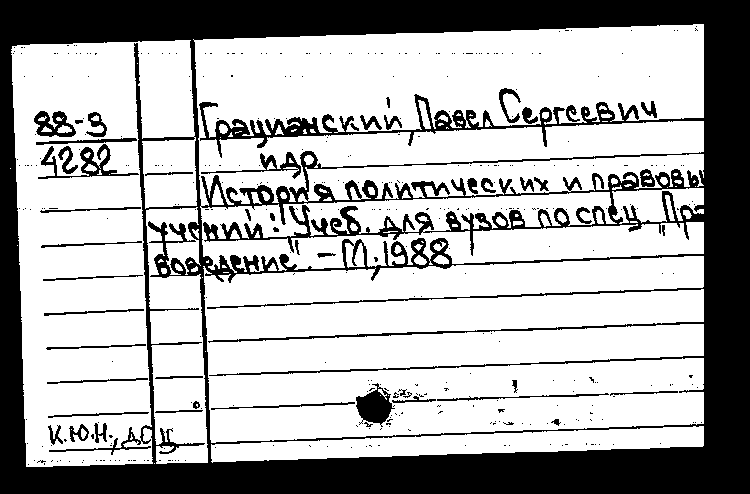 88-3
Грацианский, Павел Сергеевич
4282
и др.
История политических и правовы
учений: Учеб. для вузов по спец. "Пра
воведение". - М., 1988
К.Ю.Н.,